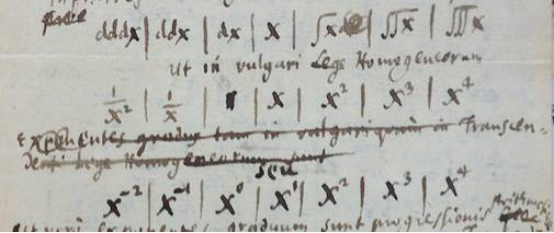 dddx | ddx | dx | x | ∫x | ∫∫x | ∫∫∫x
ut in vulgari Lege Homogeneorum
1/x² | 1/x | 1 | x | x² | x³ | x⁴
Exponentes gradus tam in vulgari quam in Transcen-
denti Lege Homogeneorum sunt
seu
x⁻² | x⁻¹ | x⁰ | x¹ | x² | x³ | x⁴
exponentes graduum sunt progressionis